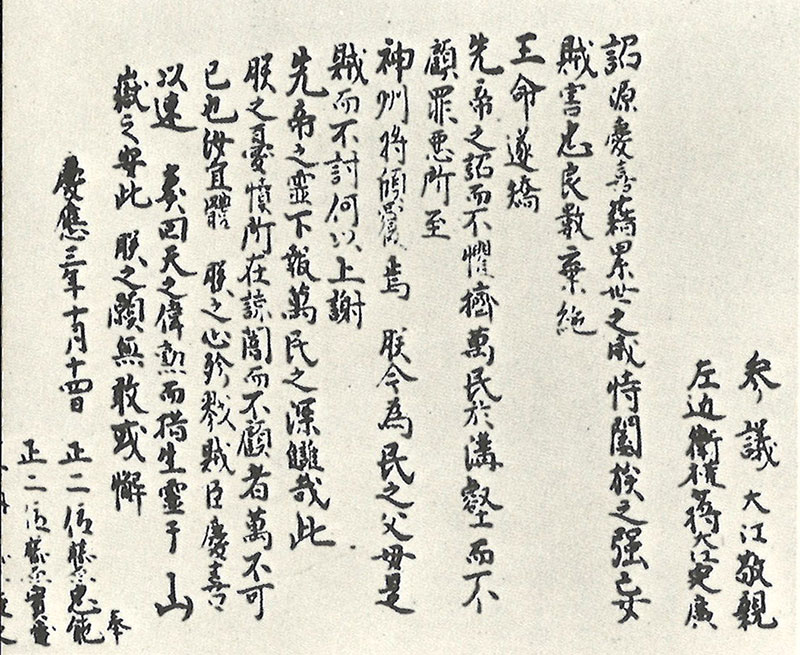 參議大江敬親
左近衛權中将大江定廣
詔源慶喜藉累世之威恃闔族之强妄
賊害忠良數棄絶
王命遂矯
先帝之詔而不懼擠萬民於溝壑而不
顧罪悪所至
神州将傾覆焉 朕今為民之父母是
賊而不討何以上謝
先帝之靈下報萬民之深讎哉此
朕之憂憤所在諒闇而不顧者萬不可
已也汝宜體 朕之心殄戮賊臣慶喜
以速 奏回天之偉勲而措生靈于山
嶽之安此 朕之願無敢或懈
慶應三年十月十四日
正二位藤原忠能 奉
正二位藤原實愛